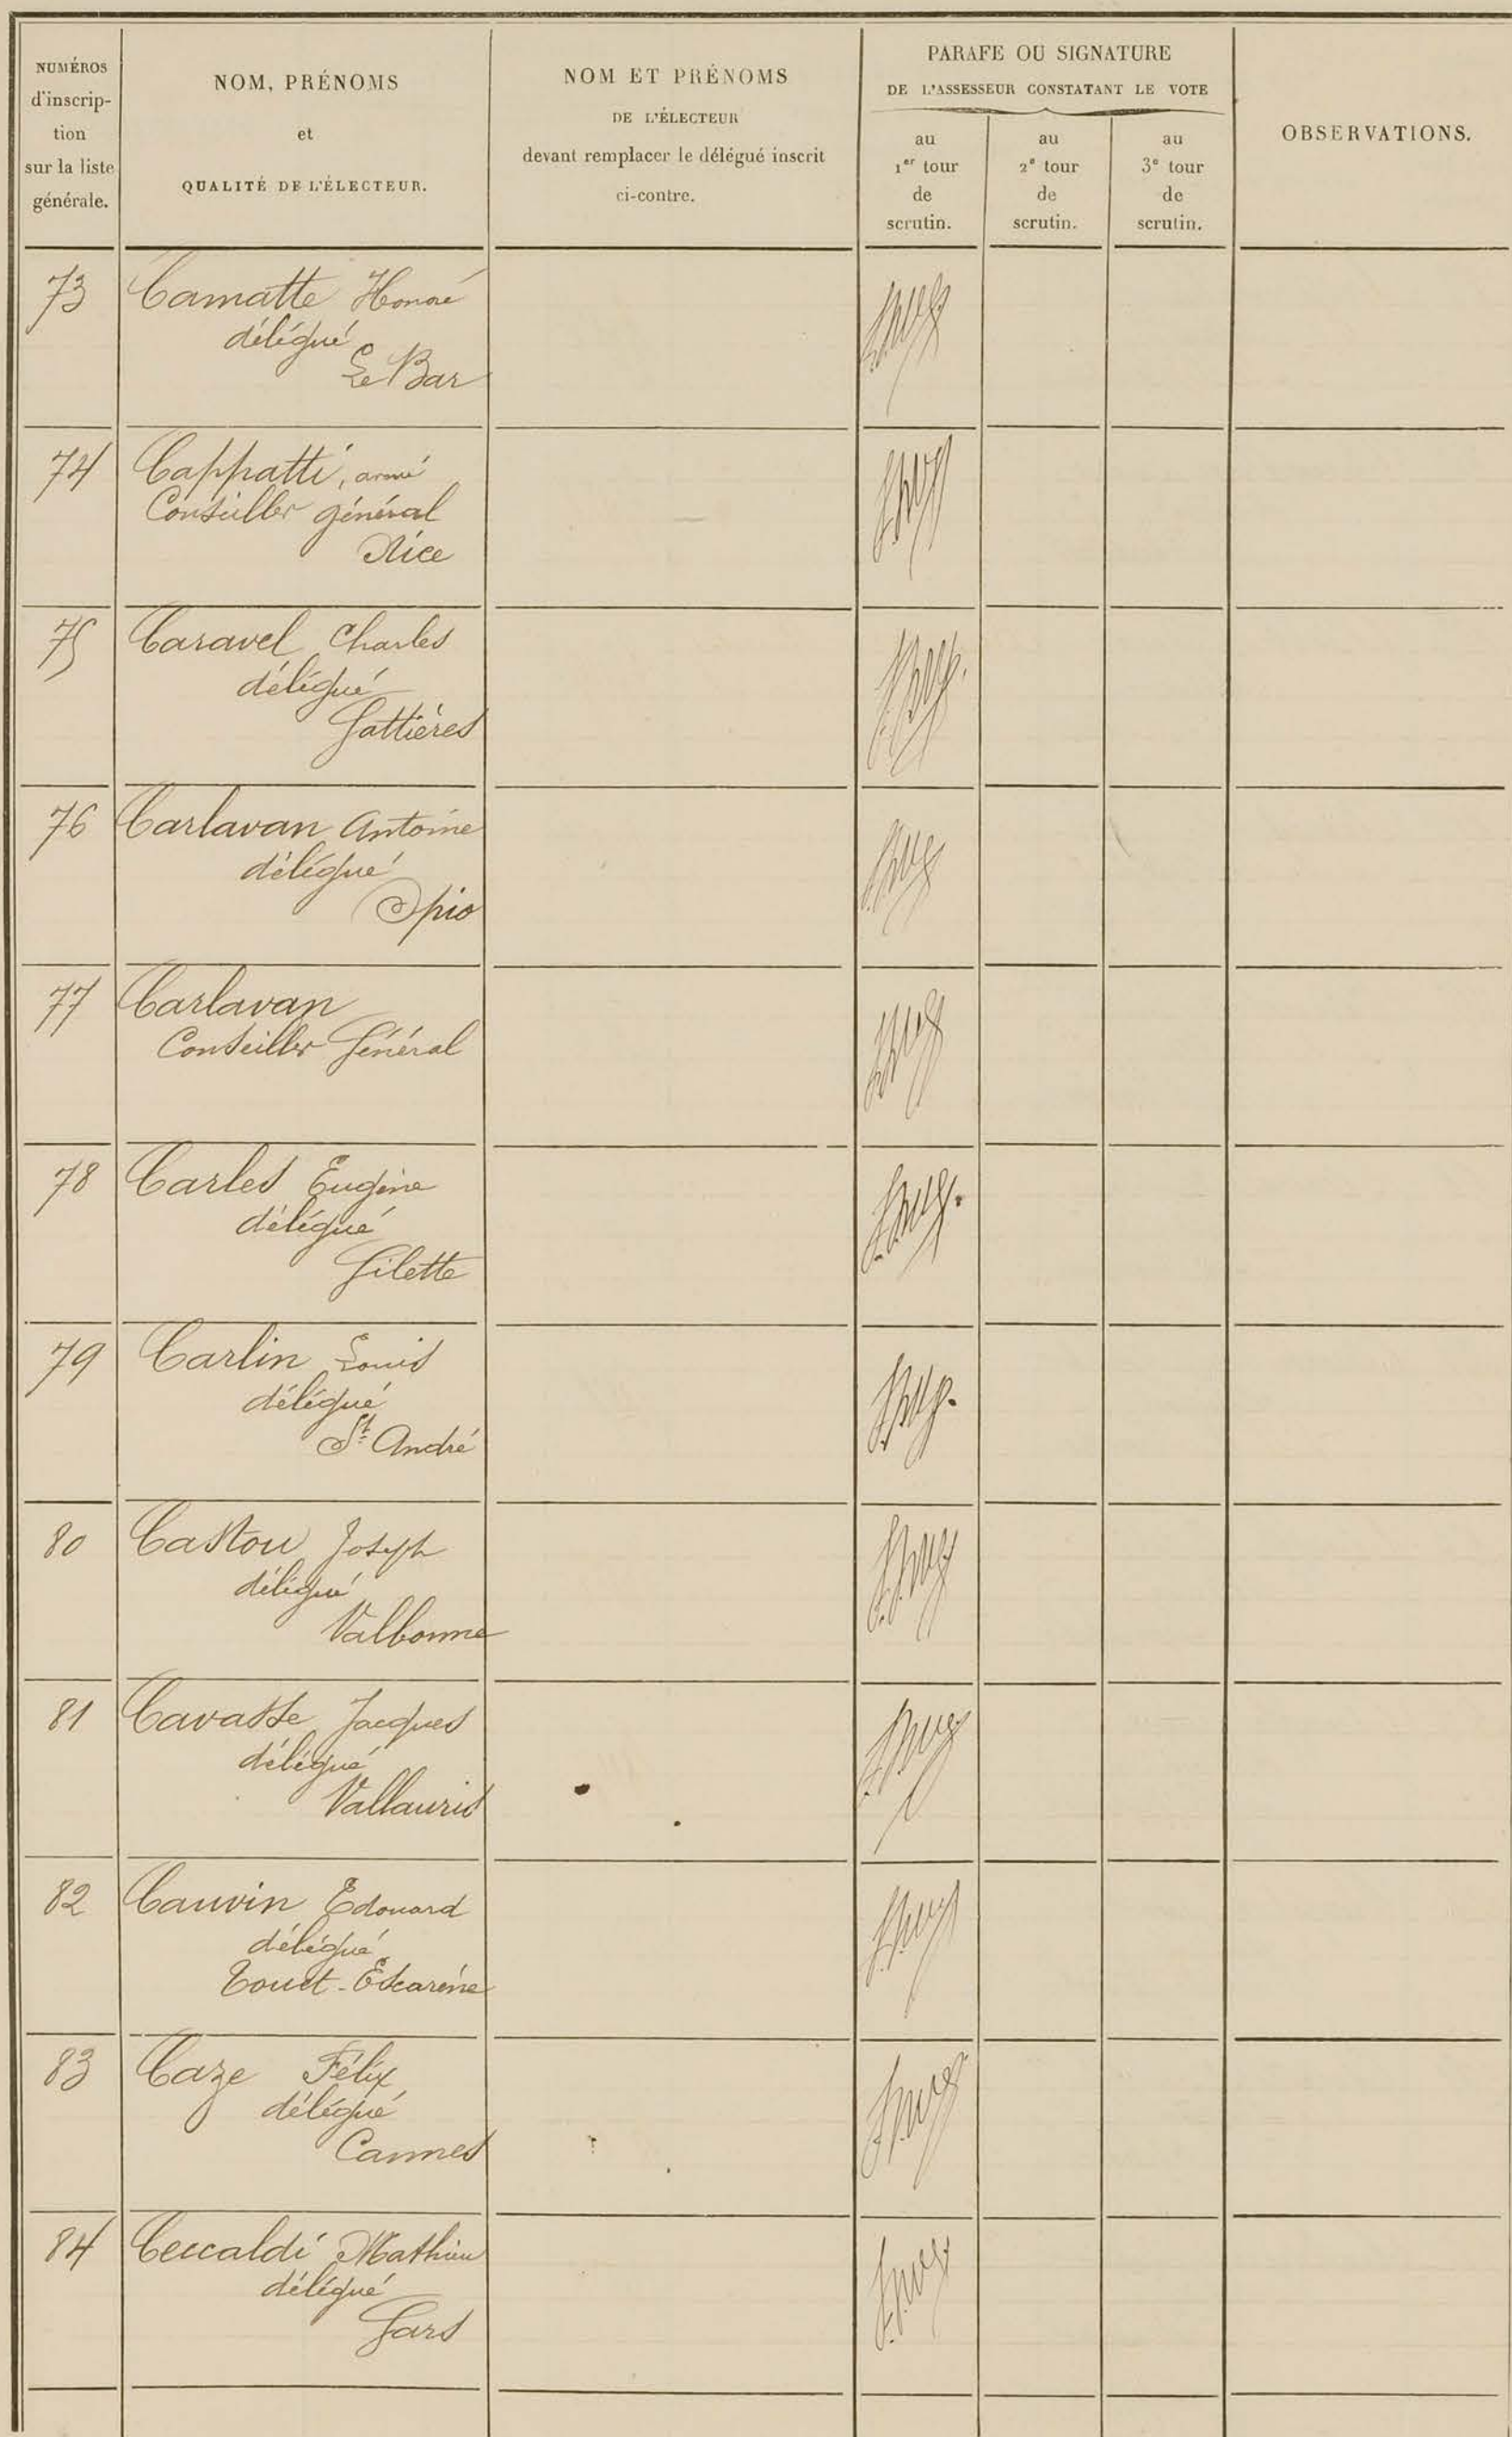 NUMÉROS
d'inscrip-
tion
sur la liste
générale.
NOM, PRÉNOMS
et
QUALITÉ DE L'ÉLECTEUR.
NOM ET PRÉNOMS
DE L'ÉLECTEUR
devant remplacer le délégué inscrit
ci-contre.
PARAFE OU SIGNATURE
DE L'ASSESSEUR CONSTATANT LE VOTE
au
1er tour
de
scrutin.
au
2e tour
de
scrutin.
au
3e tour
de
scrutin.
OBSERVATIONS.
73 Camatte Honoré
délégué
Le Bar
74 Cappatti,
Conseiller général
Nice
75 Caravel Charles
délégué
Gattières
76 Carlavan Antoine
délégué
Opio
77 Carlavan
Conseiller Général
78 Carles Eugène
délégué
Gilette
79 Carlin Louis
délégué
St André
80 Castou Joseph
délégué
Valbonne
81 Cavasse Jacques
délégué
Vallauris
82 Cauvin Edouard
délégué
Touet-Escarène
83 Caze Félix
délégué
Cannes
84 Ceccaldi Mathieu
délégué
Gars